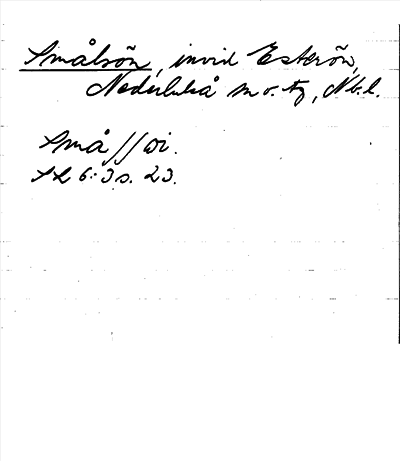 Smålsön, invid Esterön,
Nederluleå sn o. tg, Nb.l.
Små//oi.
SL 6:3 s. 23.